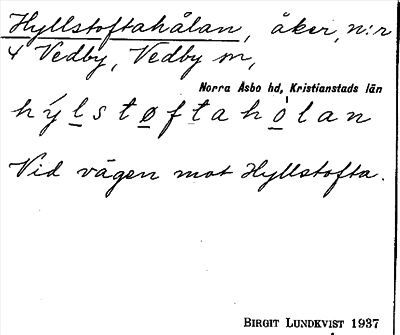 Hyllstoftahålan, åker, n:r
4 Vedby, Vedby sn,
Norra Åsbo hd, Kristianstads län
hýlstøftahòlan
Vid vägen mot Hyllstofta.
BIRGIT LUNDKVIST 1937